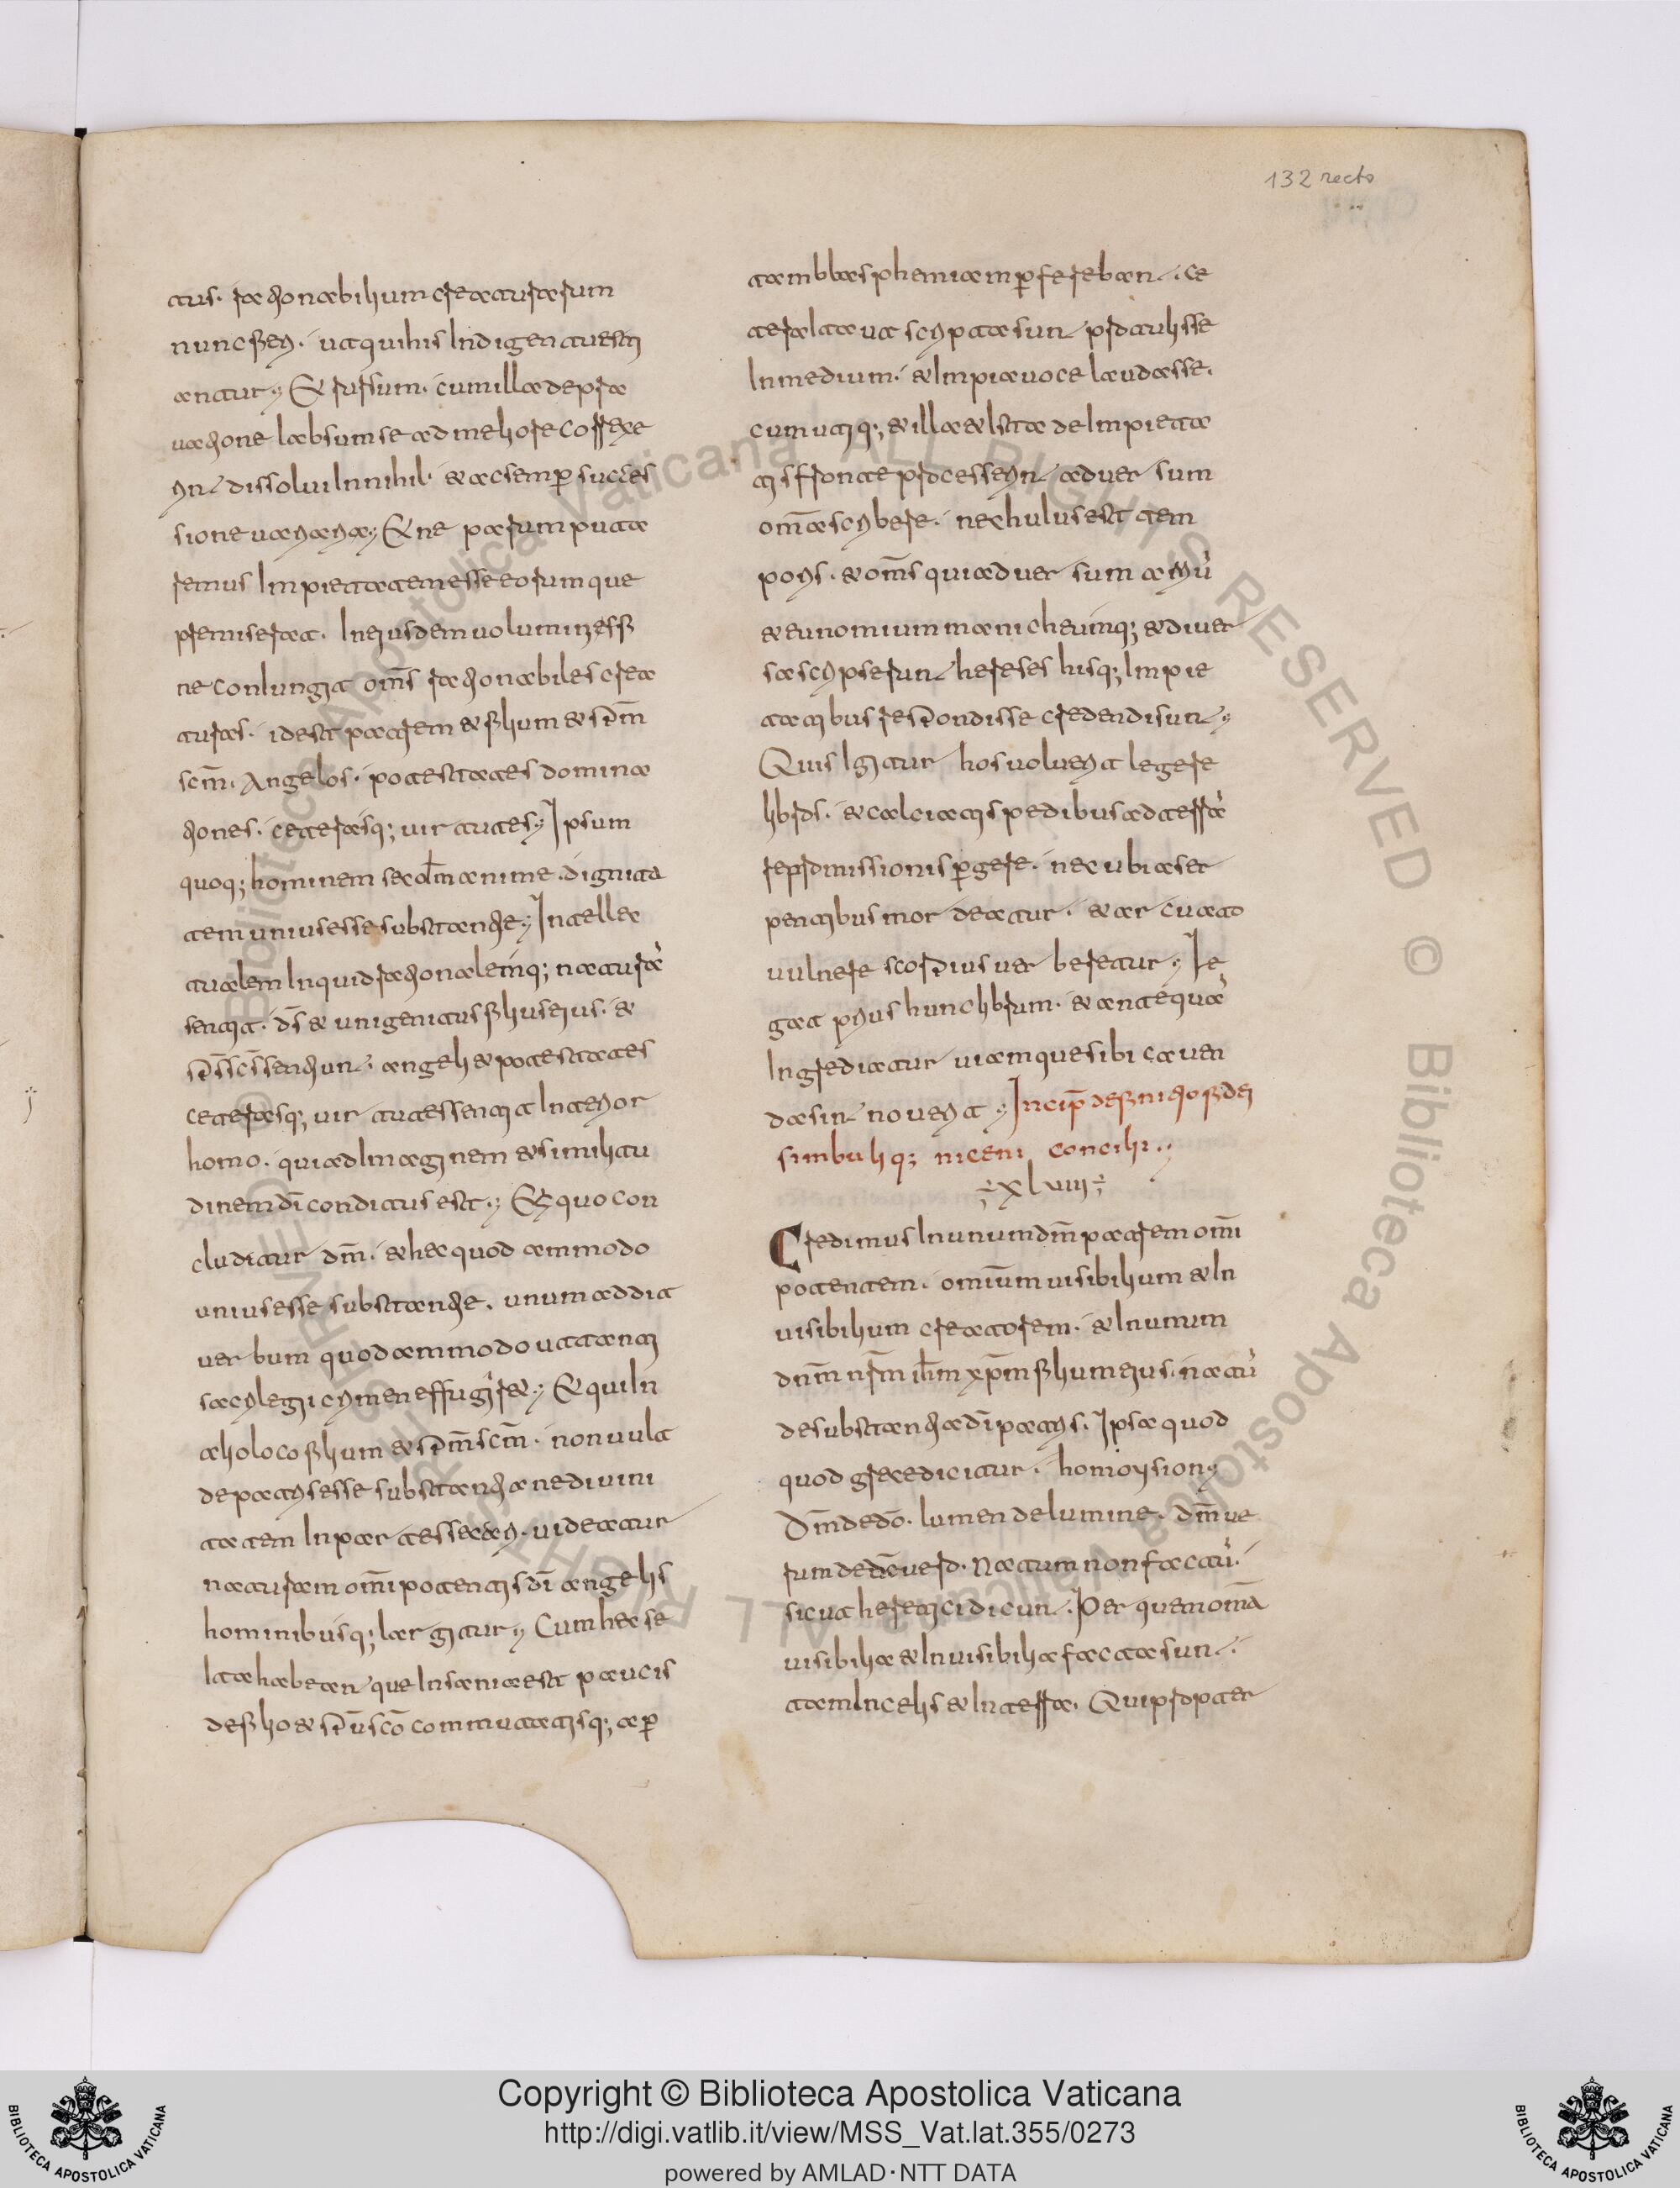 tus. rationabilium creaturarum
nunc fieri. ut qui his indigent uesti
antur. Et rursum. cum illa depra
uatione labsum se ad meliore correxe
rint dissolui in nihil. et ac semꝑ succes
sione uariari. Et ne parum puta
remus impietatem esse eorum que
premiserat. In eiusdem uoluminis fi
ne coniungit om̄s rationabiles crea
turas. idest patrem et filium et sp̄m
sc̄m. Angelos. potestates domina
tiones. ceterasq; uirtutes. Ipsum
quoq; hominem secd̄m anime. dignita
tem unius esse substantie. Intellec
tualem inquid rationalemq; naturā
sentit. d̄s et unigenitus filius eius. et
sp̄s sc̄s sentiunt. angeli et potestates
ceterasq; uirtutes sentit interior
homo. qui ad imaginem et similitu
dinem d̄i conditus est. Ex quo con
cluditur d̄m. et hec quod ammodo
unius esse substantie. unum addit
uerbum quod ammodo ut tanti
sacrilegii crimen effugiret. Et qui in
alio loco filium et sp̄m sc̄m. non uult
de patris esse substantia ne diuini
tatem in partes secari. uideatur
naturam om̄ipotentis d̄i angelis
hominibusq; largitur. Cum hec se
ita habeant que insania est paucis
de filio et sp̄u sc̄o commutatisq; aꝑ
tam bblasphemiam ꝑferebant. ce
tera ita ut scripta sunt protulisse
in medium. et impia uoce laudasse.
cum utiq; et illa et ista de impieta
tis fronte processerint aduersum
om̄a scribere. nec huius est tem
poris. et om̄s qui aduersum arriū
et eunomium manicheumq; et diuer
sa scripserunt hereses hisq; impie
tatibus respondisse credendi sunt.
Quis igitur hos uoluerit legere
libros. et calciatis pedibus ad terrā
repromissionis ꝑgere. necubi a ser
pentibus mordeatur. et arcuato
uulnere scorpius uerberetur. Le
gat prius hunc librum. et antequā
ingrediatur uiam que sibi cauen
da sint nouerit. Incip̄ definitio fidei
simbuliq; niceni concilii.
xlviiii
Credimus in unum d̄m patrem om̄i
potentem. omīum uisibilium et in
uisibilium creatorem. et in unum
dn̄m nr̄m ih̄m xp̄m filium eius. natū
de substantia d̄i patris. Ipsa quod
quod grece dicitur. homoysion
D̄m de d̄o. lumen de lumine. d̄m ue
rum de d̄o uero. Natum non factū.
sicut heretici dicunt. Per quem om̄a
uisibilia et inuisibilia facta sunt.
tam in celis et in terra. Qui propter
132 recto
Copyright © Biblioteca Apostolica Vaticana
http://digi.vatlib.it/view/MSS_Vat.lat.355/0273
powered by AMLAD·NTT DATA
BIBLIOTECA APOSTOLICA VATICANA
BIBLIOTECA APOSTOLICA VATICANA
© Biblioteca Apostolica Vaticana ALL RIGHTS RESERVED © Biblioteca Apostolica Vaticana ALL RIGHTS RESERVED